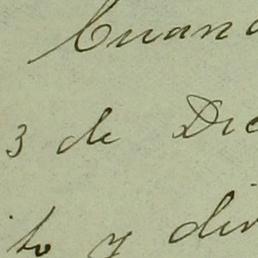 Cuand
3 de Dic
to y din